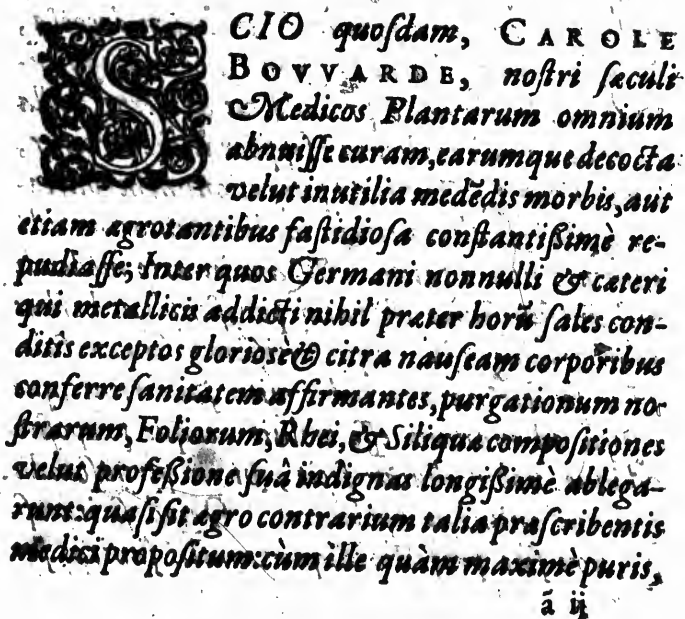 SCIO quoſdam, CAROLE
BOVVARDE, noſtri ſæculi
Medicos Plantarum omnium
abnuiſſe curam, earumque decocta
velut inutilia medẽdis morbis, aut
etiam ægrotantibus faſtidioſa conſtantißimè re-
pudiaſſe; Inter quos Germani nonnulli & cæteri
qui metallicis addicti nihil præter horũ ſales con-
ditis exceptos glorioſe & citra nauſeam corporibus
conferre ſanitatem affirmantes, purgationum no-
ſtrarum, Foliorum, Rhei, & Siliquæ compoſitiones
velut profeßione ſuâ indignas longißimè ablega-
runt: quaſi ſit ægro contrarium talia præſcribentis
medici propoſitum: cùm ille quàm maximè puris,
ã ij